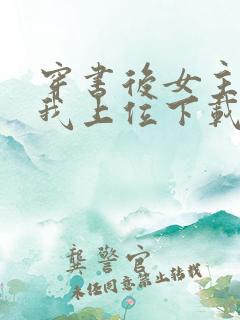 穿书后女主
我上位下载
龚警官
未经同意禁止转载